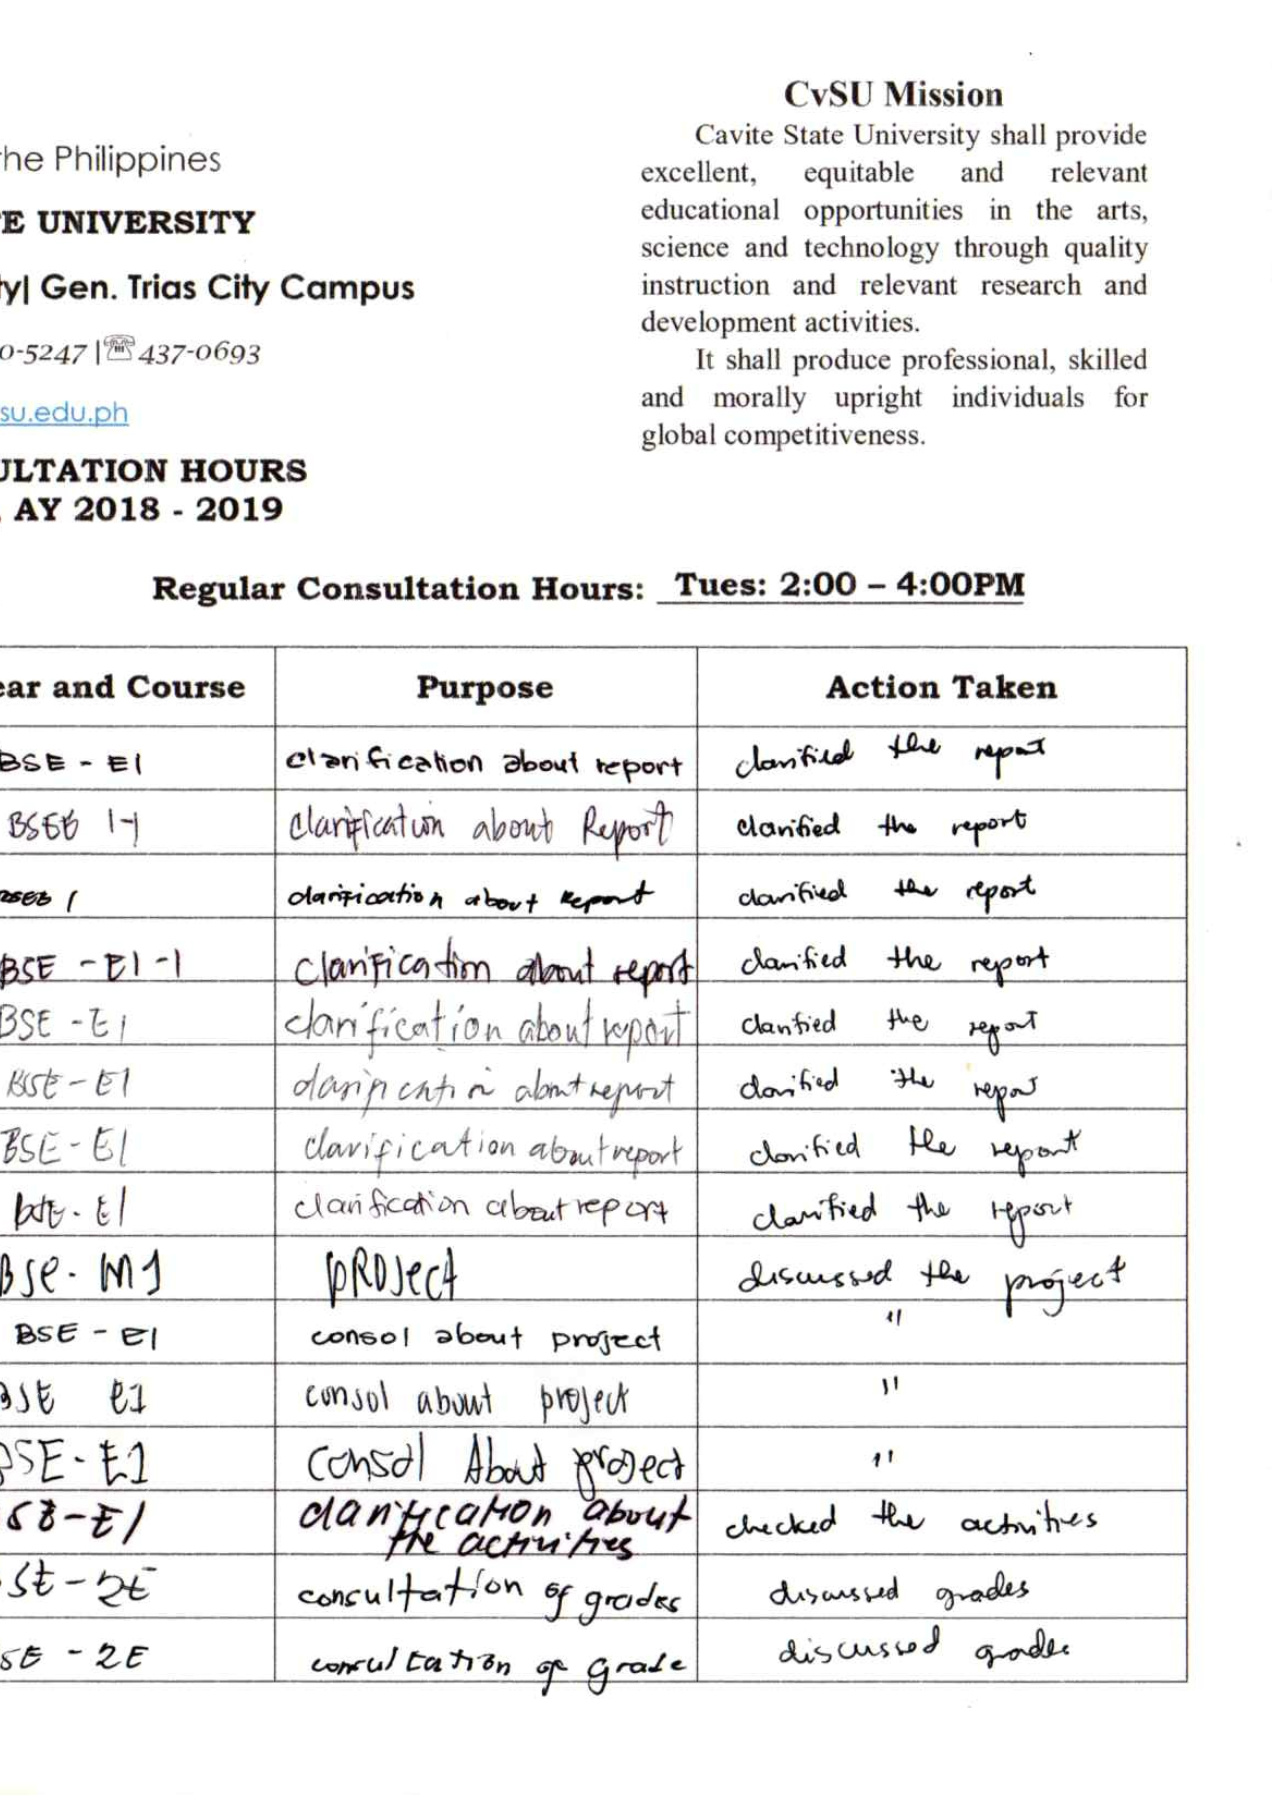 CvSU Mission
Cavite State University shall provide
excellent, equitable and relevant
educational opportunities in the arts,
science and technology through quality
instruction and relevant research and
development activities.
It shall produce professional, skilled
and morally upright individuals for
global competitiveness.
he Philippines
E UNIVERSITY
ty| Gen. Trias City Campus
0-5247 |☏ 437-0693
su.edu.ph
ULTATION HOURS
AY 2018 - 2019
Regular Consultation Hours: Tues: 2:00 – 4:00PM
ear and Course Purpose Action Taken
BSE - E1 clarification about report clarified the report
BSEE 1-1 clarification about Report clarified the report
1 clarification about report clarified the report
BSE - E1-1 clarification about report clarified the report
BSE - E1 clarification about report clarified the report
BSE - E1 clarification about report clarified the report
BSE - E1 clarification about report clarified the report
BSE - E1 clarification about report clarified the report
BSe - M1 PROJect discussed the project
BSE - E1 consol about project "
BSE E1 consol about project "
BSE - E1 consol About project "
SE - E1 clarification about
the activities checked the activities
SE - 2E consultation of grades discussed grades
SE - 2E consultation of grade discussed grades